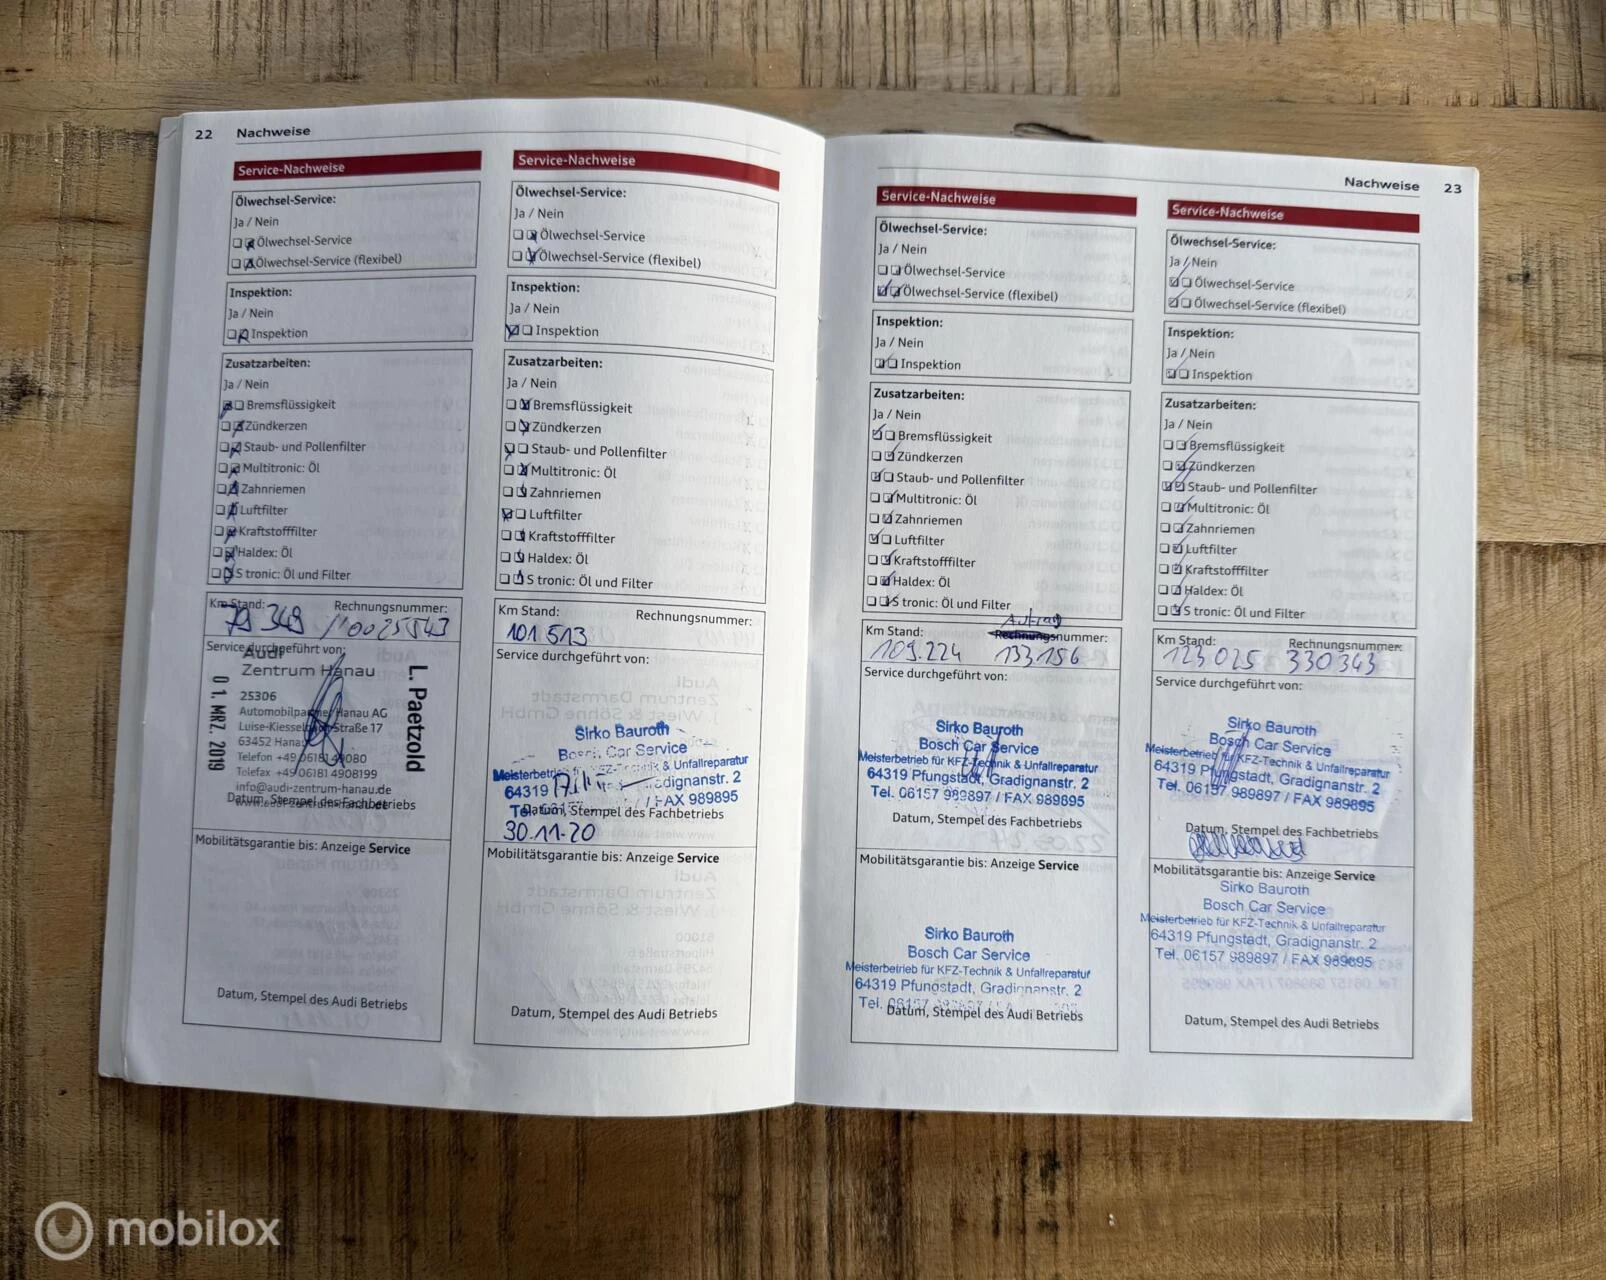 22 Nachweise
Service-Nachweise
Ölwechsel-Service:
Ja / Nein
Ölwechsel-Service
Ölwechsel-Service (flexibel)
Inspektion:
Ja / Nein
Inspektion
Zusatzarbeiten:
Ja / Nein
Bremsflüssigkeit
Zündkerzen
Staub- und Pollenfilter
Multitronic: Öl
Zahnriemen
Luftfilter
Kraftstofffilter
Haldex: Öl
S tronic: Öl und Filter
Km Stand: Rechnungsnummer:
79 349
Service durchgeführt von:
Audi
Zentrum Hanau
25306
Automobilpartner Hanau AG
Luise-Kiesselbach-Straße 17
63452 Hanau
Telefon +49 06181 49080
Telefax +49 06181 4908199
info@audi-zentrum-hanau.de
01. MRZ. 2019
L. Paetzold
Datum, Stempel des Fachbetriebs
Mobilitätsgarantie bis: Anzeige Service
Datum, Stempel des Audi Betriebs
Service-Nachweise
Ölwechsel-Service:
Ja / Nein
Ölwechsel-Service
Ölwechsel-Service (flexibel)
Inspektion:
Ja / Nein
Inspektion
Zusatzarbeiten:
Ja / Nein
Bremsflüssigkeit
Zündkerzen
Staub- und Pollenfilter
Multitronic: Öl
Zahnriemen
Luftfilter
Kraftstofffilter
Haldex: Öl
S tronic: Öl und Filter
Km Stand: Rechnungsnummer:
101 513
Service durchgeführt von:
Sirko Bauroth
Bosch Car Service
Meisterbetrieb für KFZ-Technik & Unfallreparatur
64319 Gradignanstr. 2
Tel. / FAX 989895
Datum, Stempel des Fachbetriebs
30.11.20
Mobilitätsgarantie bis: Anzeige Service
Datum, Stempel des Audi Betriebs
Nachweise 23
Service-Nachweise
Ölwechsel-Service:
Ja / Nein
Ölwechsel-Service
Ölwechsel-Service (flexibel)
Inspektion:
Ja / Nein
Inspektion
Zusatzarbeiten:
Ja / Nein
Bremsflüssigkeit
Zündkerzen
Staub- und Pollenfilter
Multitronic: Öl
Zahnriemen
Luftfilter
Kraftstofffilter
Haldex: Öl
S tronic: Öl und Filter
Auftrag
Km Stand: Rechnungsnummer:
109.224 133156
Service durchgeführt von:
Sirko Bauroth
Bosch Car Service
Meisterbetrieb für KFZ-Technik & Unfallreparatur
64319 Pfungstadt, Gradignanstr. 2
Tel. 06157 989897 / FAX 989895
Datum, Stempel des Fachbetriebs
Mobilitätsgarantie bis: Anzeige Service
Sirko Bauroth
Bosch Car Service
Meisterbetrieb für KFZ-Technik & Unfallreparatur
64319 Pfungstadt, Gradignanstr. 2
Tel. 06157
Datum, Stempel des Audi Betriebs
Service-Nachweise
Ölwechsel-Service:
Ja / Nein
Ölwechsel-Service
Ölwechsel-Service (flexibel)
Inspektion:
Ja / Nein
Inspektion
Zusatzarbeiten:
Ja / Nein
Bremsflüssigkeit
Zündkerzen
Staub- und Pollenfilter
Multitronic: Öl
Zahnriemen
Luftfilter
Kraftstofffilter
Haldex: Öl
S tronic: Öl und Filter
Km Stand: Rechnungsnummer:
123 025 330343
Service durchgeführt von:
Sirko Bauroth
Bosch Car Service
Meisterbetrieb für KFZ-Technik & Unfallreparatur
64319 Pfungstadt, Gradignanstr. 2
Tel. 06157 989897 / FAX 989895
Datum, Stempel des Fachbetriebs
Mobilitätsgarantie bis: Anzeige Service
Sirko Bauroth
Bosch Car Service
Meisterbetrieb für KFZ-Technik & Unfallreparatur
64319 Pfungstadt, Gradignanstr. 2
Tel. 06157 989897 / FAX 989895
Datum, Stempel des Audi Betriebs
mobilox